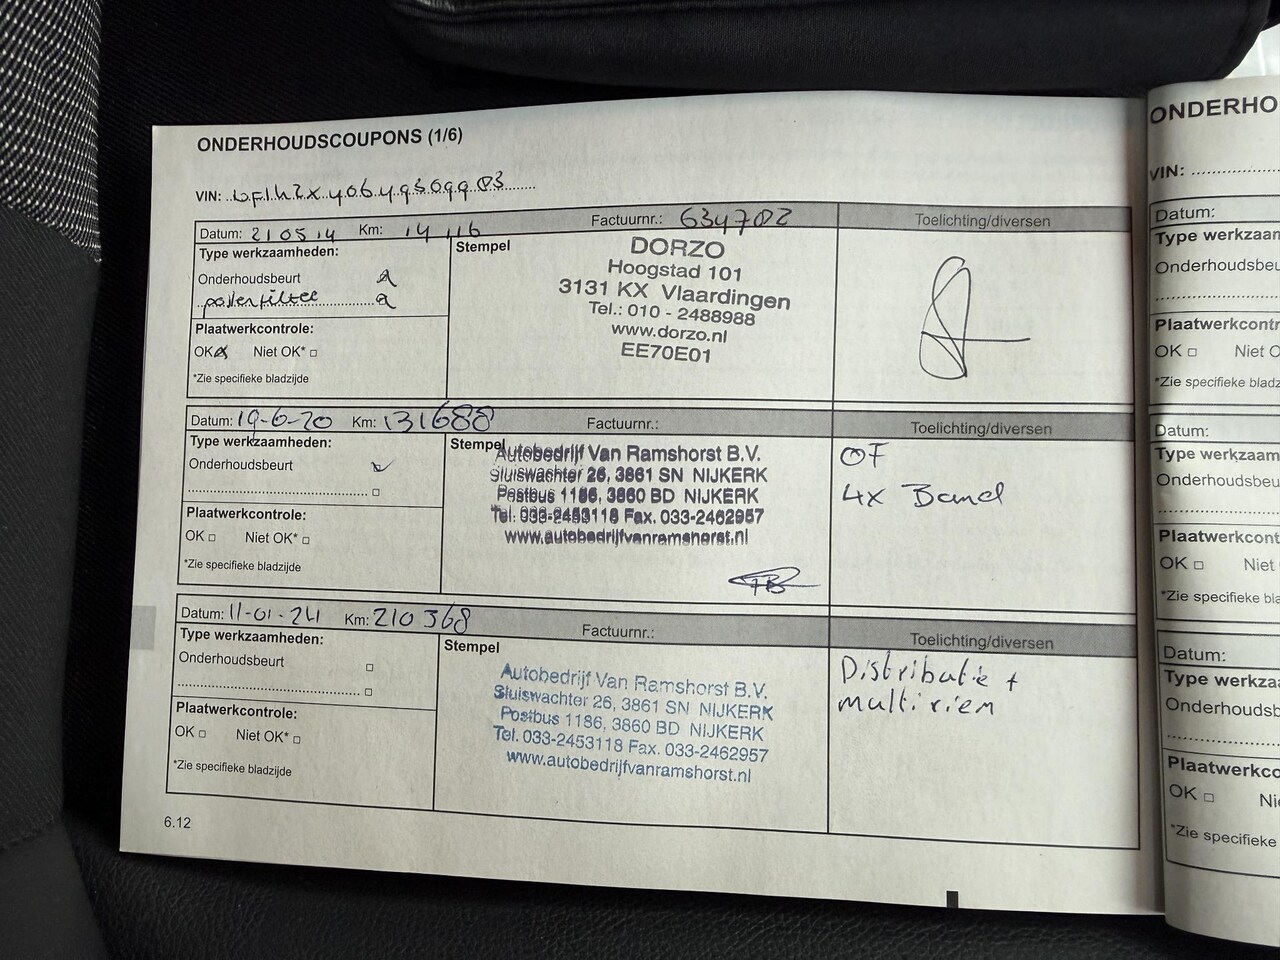 ONDERHOUDSCOUPONS (1/6)
VIN:
Datum: 210514 Km: 14 116 Factuurnr.: 634702 Toelichting/diversen
Type werkzaamheden:
Stempel
Onderhoudsbeurt
pollenfilter
Plaatwerkcontrole:
OK Niet OK*
*Zie specifieke bladzijde
DORZO
Hoogstad 101
3131 KX Vlaardingen
Tel.: 010 - 2488988
www.dorzo.nl
EE70E01
Datum: 19-6-20 Km: 131688 Factuurnr.: Toelichting/diversen
Type werkzaamheden:
Stempel
Onderhoudsbeurt
Plaatwerkcontrole:
OK Niet OK*
*Zie specifieke bladzijde
Autobedrijf Van Ramshorst B.V.
Sluiswachter 26, 3861 SN NIJKERK
Postbus 1186, 3860 BD NIJKERK
Tel. 033-2453118 Fax. 033-2462957
www.autobedrijfvanramshorst.nl
OF
4x Band
Datum: 11-01-24 Km: 210368 Factuurnr.: Toelichting/diversen
Type werkzaamheden:
Stempel
Onderhoudsbeurt
Plaatwerkcontrole:
OK Niet OK*
*Zie specifieke bladzijde
Autobedrijf Van Ramshorst B.V.
Sluiswachter 26, 3861 SN NIJKERK
Postbus 1186, 3860 BD NIJKERK
Tel. 033-2453118 Fax. 033-2462957
www.autobedrijfvanramshorst.nl
Distributie +
multi riem
6.12
ONDERHO
VIN:
Datum:
Type werkzaan
Onderhoudsbeu
Plaatwerkcontr
OK Niet O
*Zie specifieke bladz
Datum:
Type werkzaam
Onderhoudsbeu
Plaatwerkcont
OK Niet
*Zie specifieke bla
Datum:
Type werkza
Onderhoudsb
Plaatwerkco
OK Ni
*Zie specifieke